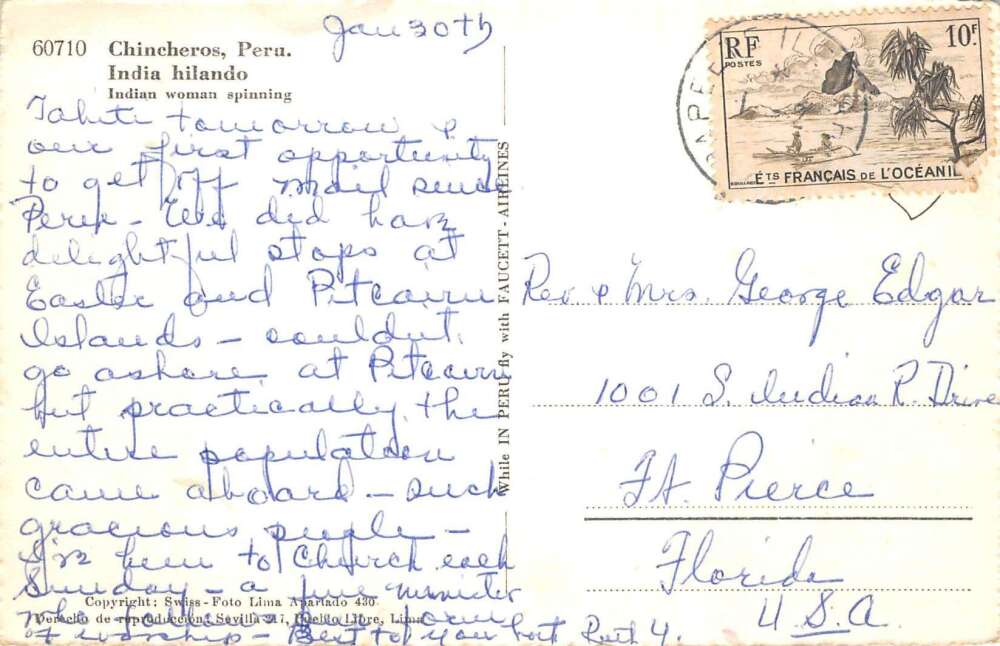 Jan 30th
60710 Chincheros, Peru.
India hilando
Indian woman spinning
Tahiti tomorrow &
our first opportunity
to get off mail since
Peru - We did have
delightful stops at
Easter and Pitcairn
Islands - couldn't
go ashore at Pitcairn
but practically the
entire population
came aboard - such
gracious people -
I've been to Church each
Sunday - a fine minister
who follows our form
of worship - Best to you both Ruth Y.
Copyright: Swiss-Foto Lima Apartado 430
Derecho de reproducción: Sevilla 217, Pueblo Libre, Lima
While IN PERU fly with FAUCETT-AIRLINES
RF
POSTES
10F
ÉTS FRANÇAIS DE L'OCÉANIE
PAPEETE
Rev & Mrs. George Edgar
1001 S. Indian R. Drive
Ft. Pierce
Florida
U.S.A